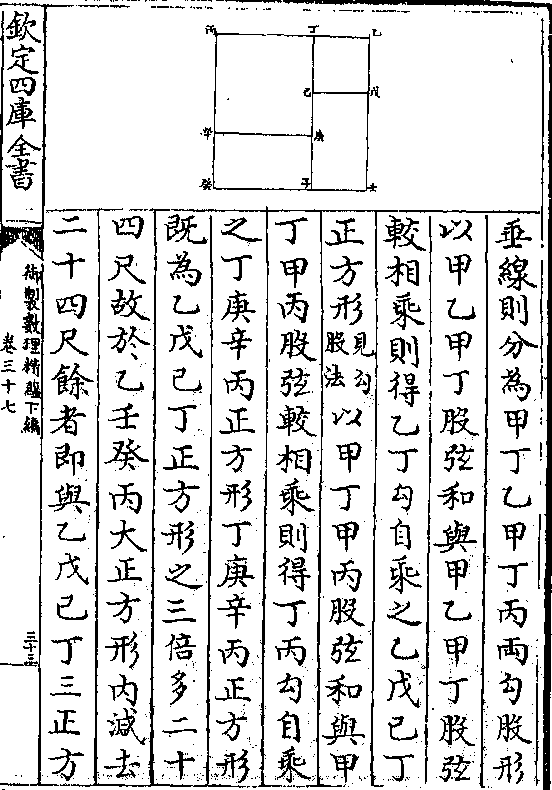 垂線則分為甲丁乙甲丁丙兩勾股形
以甲乙甲丁股弦和與甲乙甲丁股弦
較相乘則得乙丁勾自乘之乙戊己丁
正方形見勾股法以甲丁甲丙股弦和與甲
丁甲丙股弦較相乘則得丁丙勾自乘
之丁庚辛丙正方形丁庚辛丙正方形
既為乙戊己丁正方形之三倍多二十
四尺故於乙壬癸丙大正方形內減去
二十四尺餘者即與乙戊己丁三正方
欽定四庫全書
御製數理精蘊下編
卷三十七
三十三
丙 丁 乙
己 戊
辛 庚
癸 子 壬